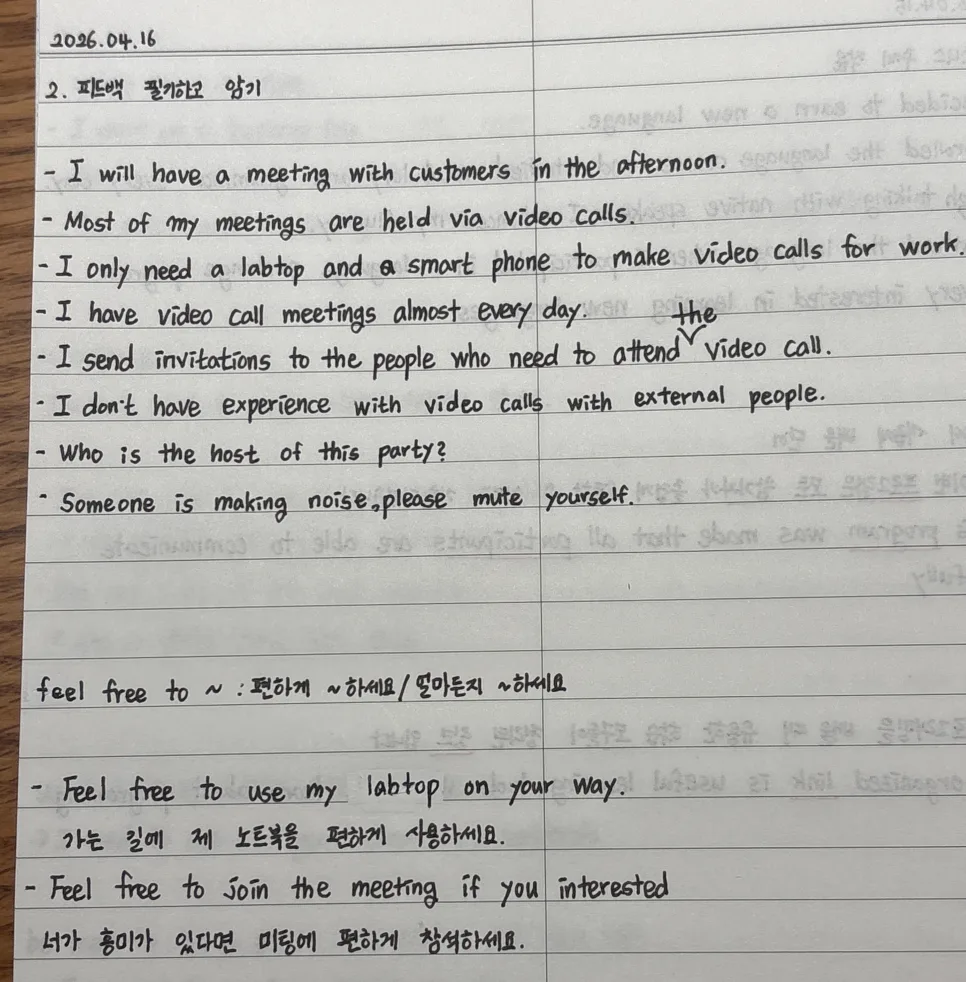 2026.04.16
2. 피드백 필기하고 암기
- I will have a meeting with customers in the afternoon.
- Most of my meetings are held via video calls.
- I only need a labtop and a smart phone to make video calls for work.
- I have video call meetings almost every day.
the
- I send invitations to the people who need to attend video call.
- I don't have experience with video calls with external people.
- Who is the host of this party?
- Someone is making noise, please mute yourself.
feel free to ~ : 편하게 ~하세요/ 얼마든지 ~하세요
- Feel free to use my labtop on your way.
가는 길에 제 노트북을 편하게 사용하세요.
- Feel free to join the meeting if you interested
너가 흥미가 있다면 미팅에 편하게 참석하세요.